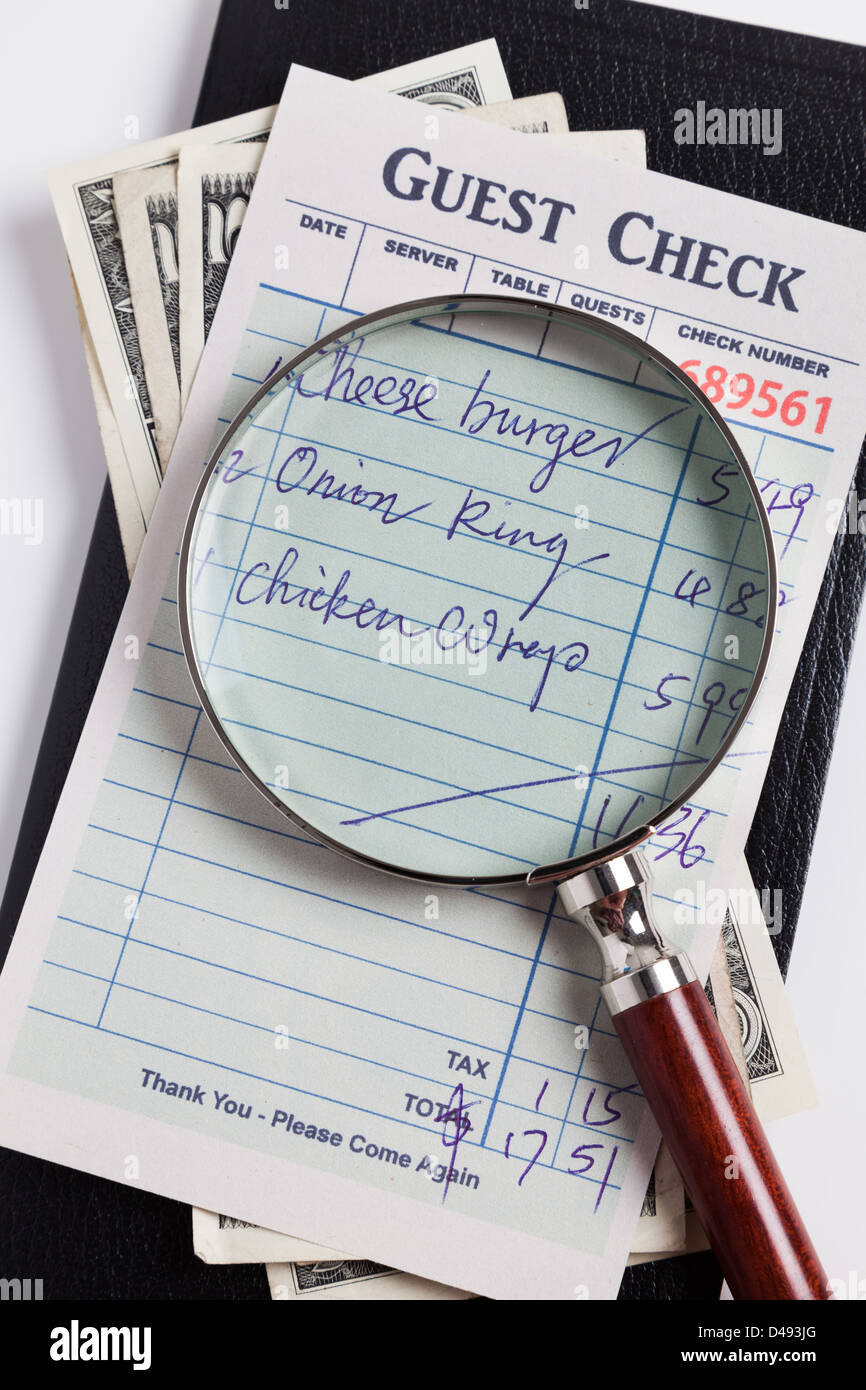 GUEST CHECK
DATE SERVER TABLE QUESTS CHECK NUMBER
689561
1 Cheese burger 5 49
2 Onion Ring 4 88
1 chicken Wrap 5 99
16 36
TAX 1 15
TOTAL $ 17 51
Thank You - Please Come Again
alamy
Image ID: D493JG
www.alamy.com